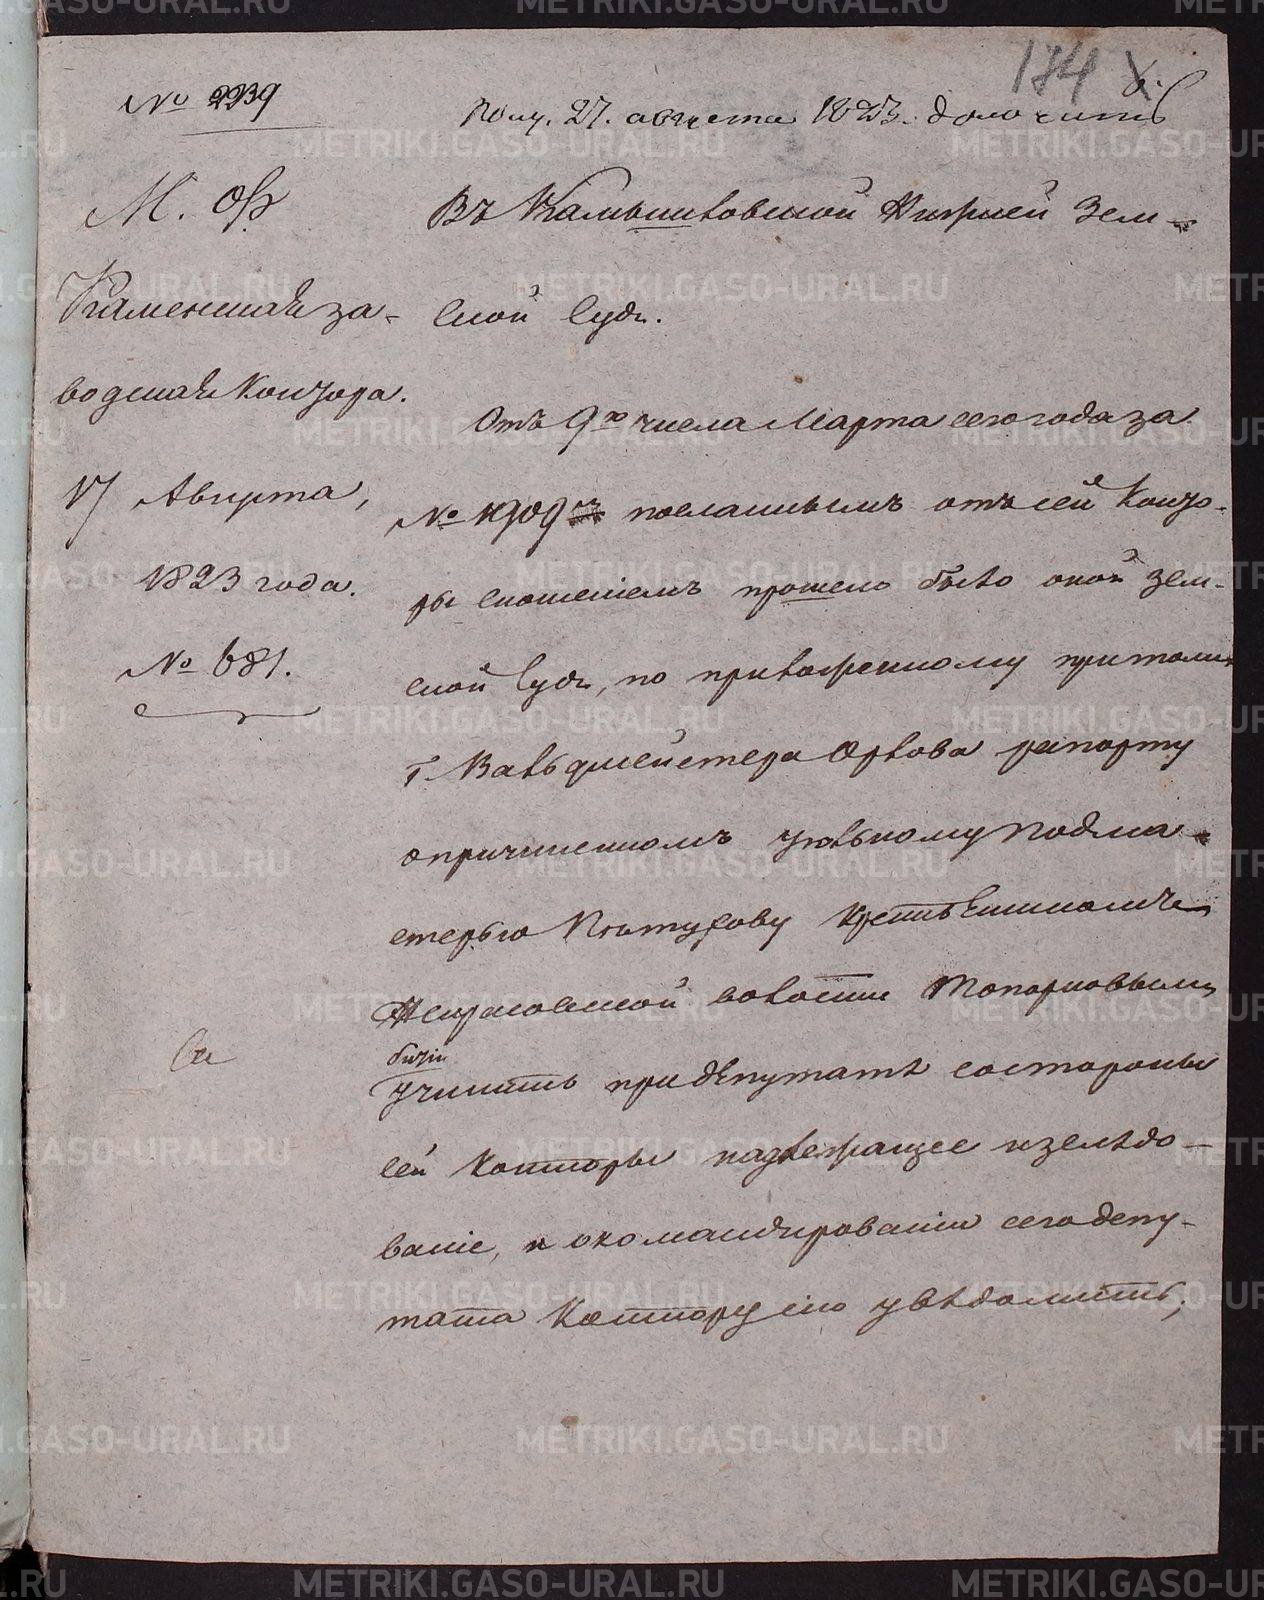 174
№ 2239
Полу. 27. августа 1823. доложить
М. Ф.
Каменская за-
водская Контора.
17 Августа,
1823 года.
№ 681.
Въ Камышловской Нижней Зем-
ской Судъ.
Отъ 9го числа Марта сего года за
№ 1909 посланнымъ отъ сей Конто-
ры сношеніемъ прошено было оной зем-
ской Судъ, по приложенному при томъ
г. Вальдмейстера Орлова рапорту
о причиненномъ Подма-
стерью Пѣтухову крестьянинномъ
Некрасовской волости Топорковымъ
битіи
учинить при депутатѣ со стороны
сей Конторы надлежащее изслѣдо-
ваніе, и о командированіи сего депу-
тата Контору сію увѣдомить,
METRIKI.GASO-URAL.RU